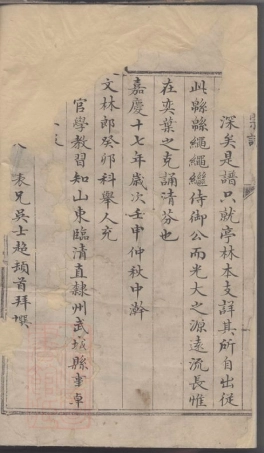 深矣是譜只就亭林本支詳其所自出從
此緜緜繩繩繼侍御公而光大之源遠流長惟
在奕葉之克誦清芬也
嘉慶十七年歲次壬申仲秋中澣
文林郎癸卯科舉人充
官學教習知山東臨清直隸州武城縣事卓
表兄吳士超頓首拜撰